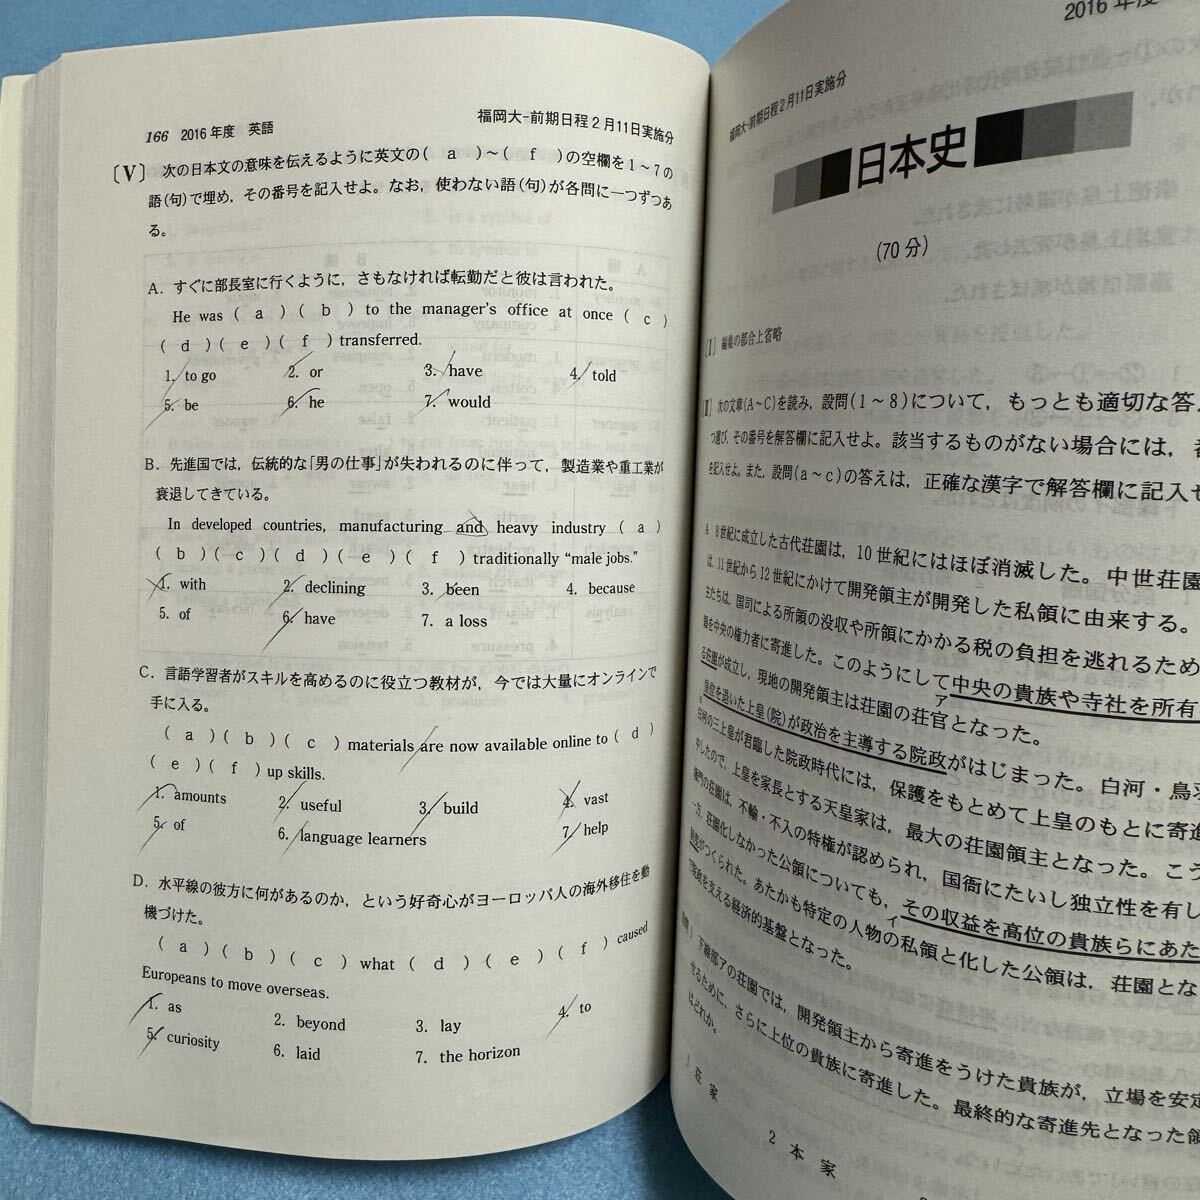 166 2016年度 英語
福岡大-前期日程2月11日実施分
〔V〕 次の日本文の意味を伝えるように英文の( a )~( f )の空欄を1~7の
語(句)で埋め,その番号を記入せよ。なお,使わない語(句)が各問に一つずつあ
る。
A. すぐに部長室に行くように,さもなければ転勤だと彼は言われた。
He was ( a ) ( b ) to the manager's office at once ( c )
( d ) ( e ) ( f ) transferred.
1. to go 2. or 3. have 4. told
5. be 6. he 7. would
B. 先進国では,伝統的な「男の仕事」が失われるのに伴って,製造業や重工業が
衰退してきている。
In developed countries, manufacturing and heavy industry ( a )
( b ) ( c ) ( d ) ( e ) ( f ) traditionally “male jobs.”
1. with 2. declining 3. been 4. because
5. of 6. have 7. a loss
C. 言語学習者がスキルを高めるのに役立つ教材が,今では大量にオンラインで
手に入る。
( a ) ( b ) ( c ) materials are now available online to ( d )
( e ) ( f ) up skills.
1. amounts 2. useful 3. build 4. vast
5. of 6. language learners 7. help
D. 水平線の彼方に何があるのか,という好奇心がヨーロッパ人の海外移住を動
機づけた。
( a ) ( b ) ( c ) what ( d ) ( e ) ( f ) caused
Europeans to move overseas.
1. as 2. beyond 3. lay 4. to
5. curiosity 6. laid 7. the horizon
2016年度
福岡大-前期日程2月11日実施分
日本史
(70分)
〔I〕 編集の都合上省略
〔II〕 次の文章(A~C)を読み,設問(1~8)について,もっとも適切な答
つ選び,その番号を解答欄に記入せよ。該当するものがない場合には,
を記入せよ。また,設問(a~c)の答えは,正確な漢字で解答欄に記入せ
A 8世紀に成立した古代荘園は,10世紀にはほぼ消滅した。中世荘園
は,11世紀から12世紀にかけて開発領主が開発した私領に由来する。
主たちは,国司による所領の没収や所領にかかる税の負担を逃れるため
領を中央の権力者に寄進した。このようにして中央の貴族や寺社を所有
ア
る荘園が成立し,現地の開発領主は荘園の荘官となった。
皇位を退いた上皇(院)が政治を主導する院政がはじまった。白河・鳥羽
白河の三上皇が君臨した院政時代には,保護をもとめて上皇のもとに寄進
中したので,上皇を家長とする天皇家は,最大の荘園領主となった。こう
権門の荘園は,不輸・不入の特権が認められ,国衙にたいし独立性を有し
一方,荘園化しなかった公領についても,その収益を高位の貴族らにあた
イ
制度がつくられた。あたかも特定の人物の私領と化した公領は,荘園とな
で院政を支える経済的基盤となった。
下線部アの荘園では,開発領主から寄進をうけた貴族が,立場を安定
せるために,さらに上位の貴族に寄進した。最終的な寄進先となった領
はどれか。
1 荘家
2 本家